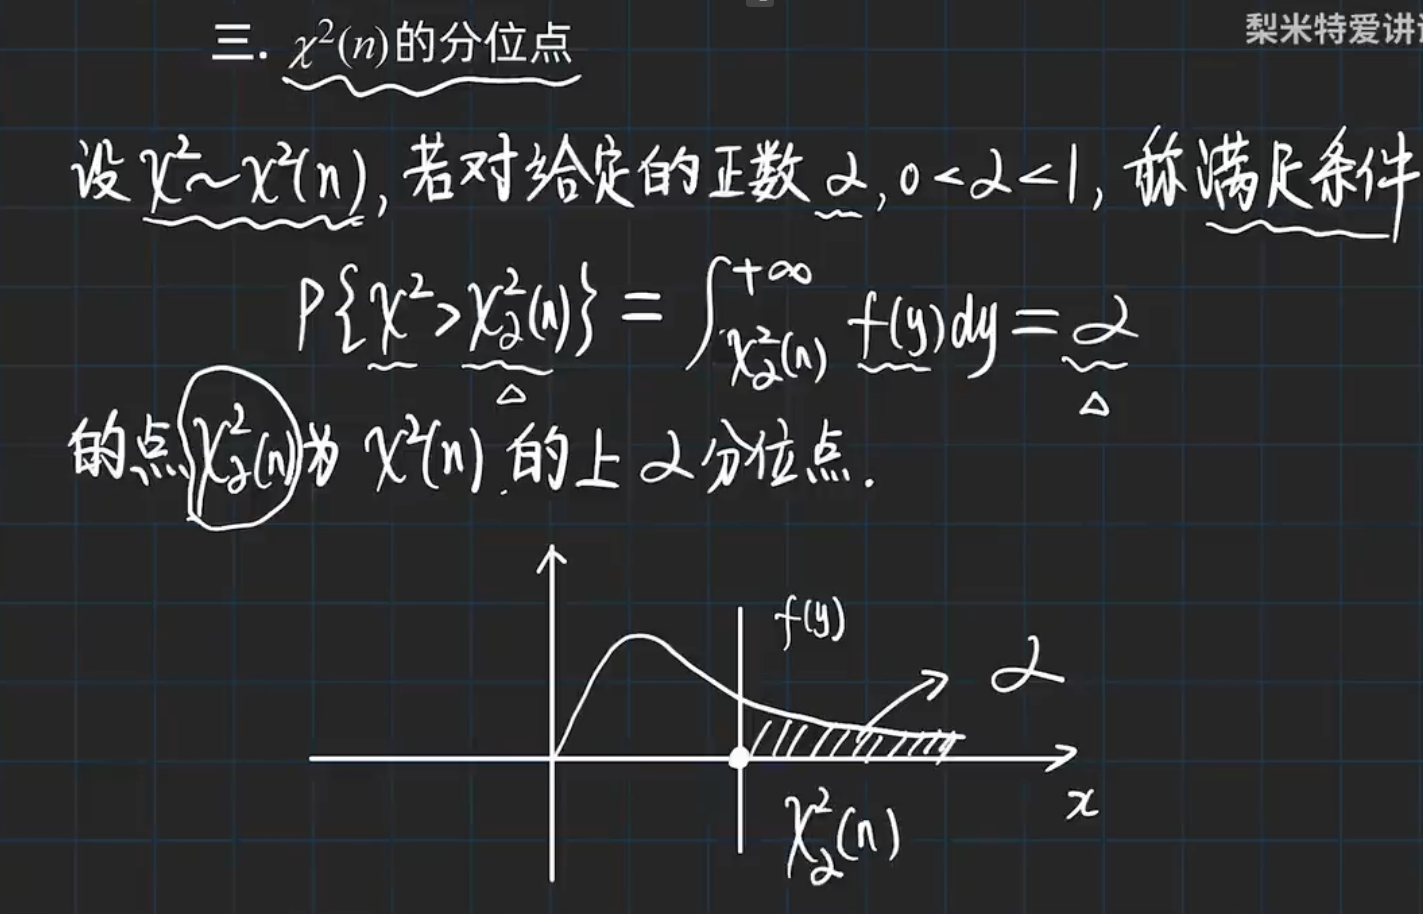 梨米特爱讲
三. χ²(n)的分位点
设 χ²~χ²(n), 若对给定的正数 α, 0<α<1, 称满足条件
P{χ²>χ²_α(n)} = ∫_{χ²_α(n)}^{+∞} f(y)dy = α
的点 χ²_α(n) 为 χ²(n) 的上 α 分位点.
f(y)
α
x
χ²_α(n)